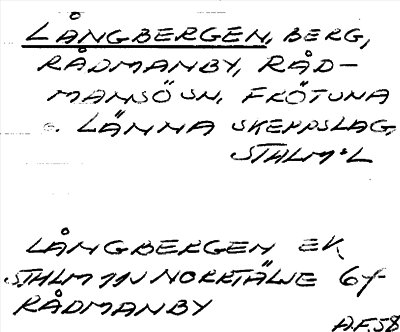 LÅNGBERGEN, BERG,
RÅDMANBY, RÅD-
MANSÖ SN. FRÖTUNA
o. LÄNNA SKEPPSLAG
STHLM:S L
LÅNGBERGEN EK
STHLM 11N NORRTÄLJE 6f
RÅDMANBY
A.F.58